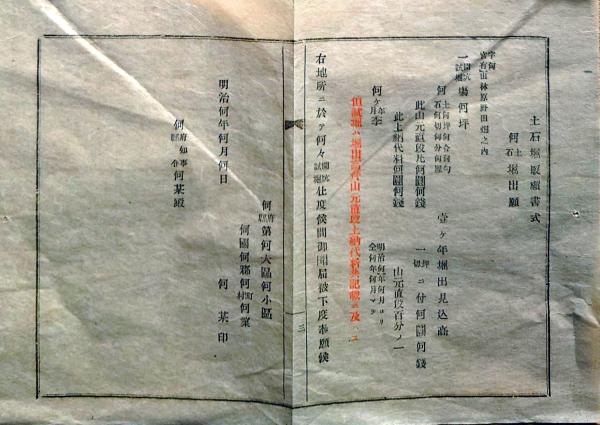 土石堀取願書式
何 土石 堀出願
字何
官有山林原野田畑之內
一 開坑試堀 場何坪
何 土何坪何合何勺 石何切何分何厘 壹ヶ年堀出見込高
此山元直段凡何圓何錢 一 坪切 ニ付何圓何錢
此上納代料何圓何錢 山元直段百分ノ一
何ヶ 年月 季 明治何年何月ヨリ 仝何年何月マデ
但試堀ハ堀出高幷山元直段上納代料等記載ニ及ハス
右地所ニ於テ何々 開坑試堀 仕度候間御聞屆被下度奉願候
三
何 府縣 第何大區何小區
何國何郡何 町村 何業
何某印
明治何年何月何日
何 府知事縣令 何某殿